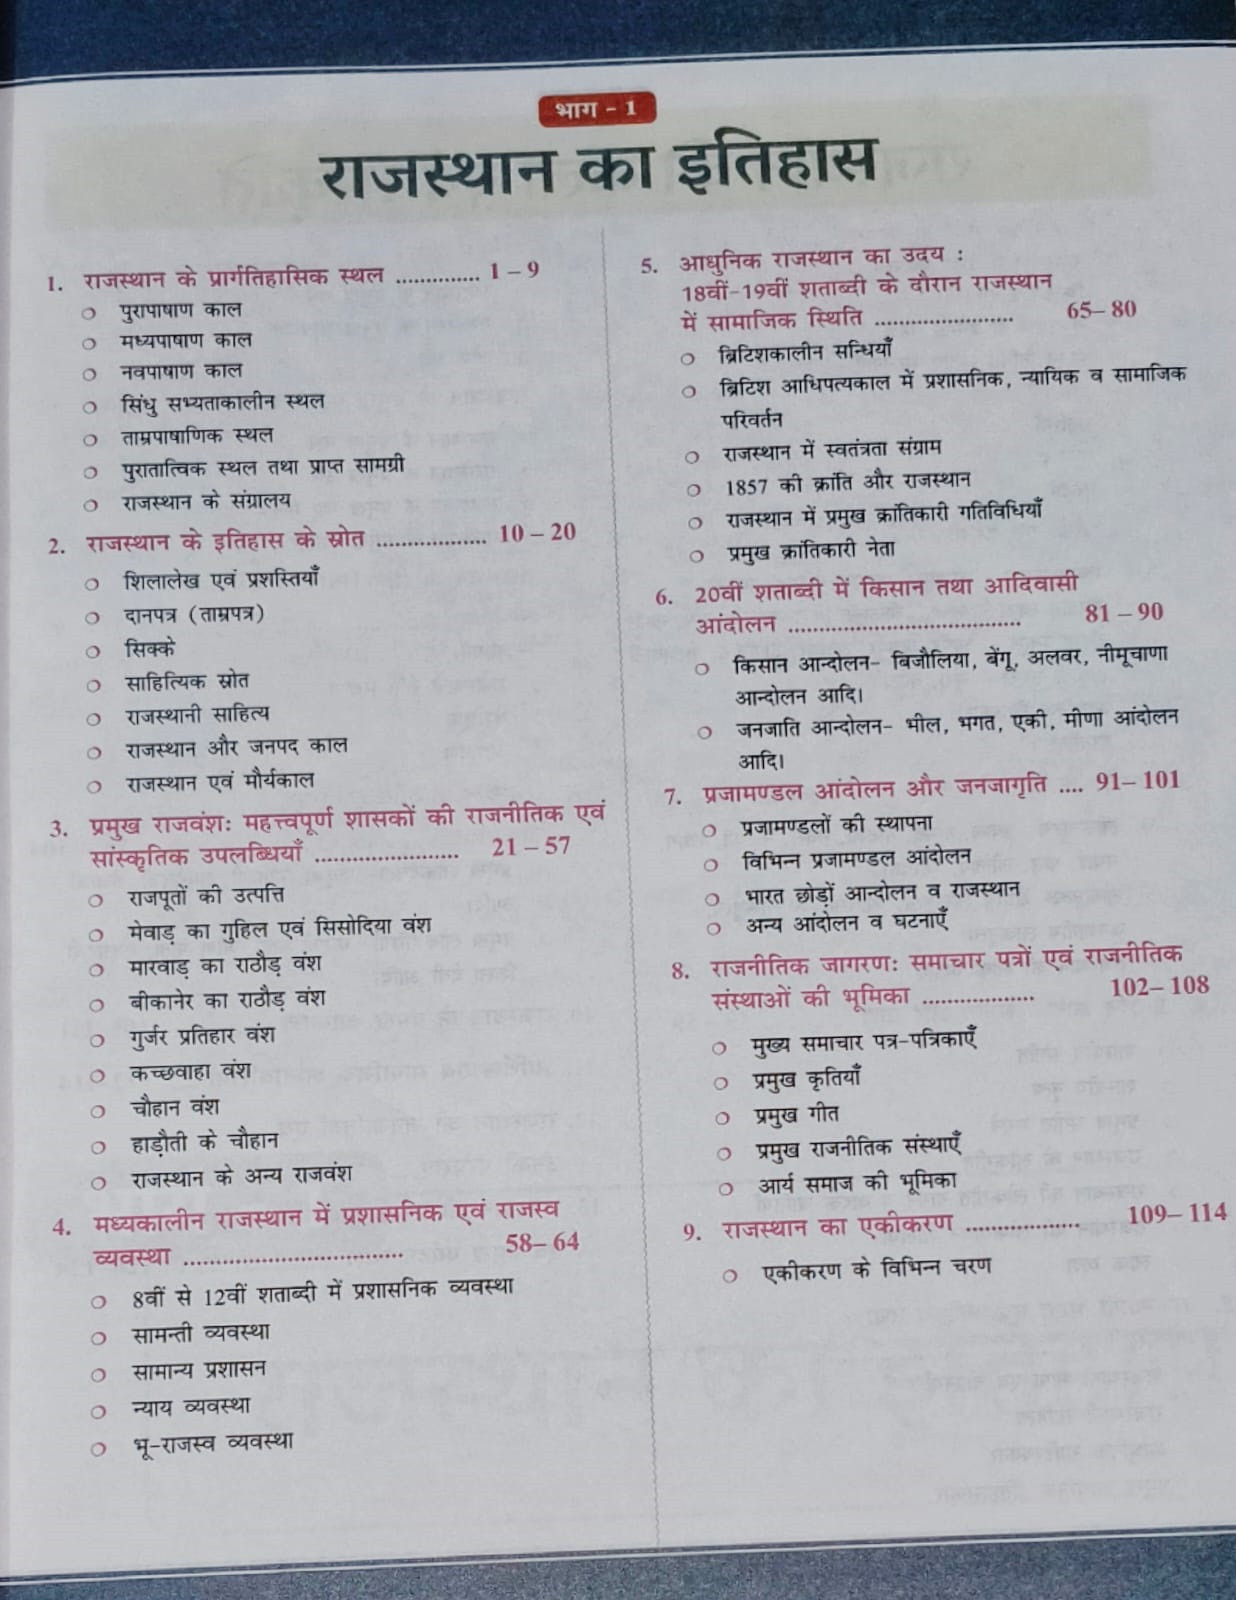 भाग - 1
राजस्थान का इतिहास
1. राजस्थान के प्रार्गतिहासिक स्थल .............. 1 – 9
○ पुरापाषाण काल
○ मध्यपाषाण काल
○ नवपाषाण काल
○ सिंधु सभ्यताकालीन स्थल
○ ताम्रपाषाणिक स्थल
○ पुरातात्विक स्थल तथा प्राप्त सामग्री
○ राजस्थान के संग्रालय
2. राजस्थान के इतिहास के स्रोत .................. 10 – 20
○ शिलालेख एवं प्रशस्तियाँ
○ दानपत्र (ताम्रपत्र)
○ सिक्के
○ साहित्यिक स्रोत
○ राजस्थानी साहित्य
○ राजस्थान और जनपद काल
○ राजस्थान एवं मौर्यकाल
3. प्रमुख राजवंशः महत्त्वपूर्ण शासकों की राजनीतिक एवं
सांस्कृतिक उपलब्धियाँ ........................ 21 – 57
○ राजपूतों की उत्पत्ति
○ मेवाड़ का गुहिल एवं सिसोदिया वंश
○ मारवाड़ का राठौड़ वंश
○ बीकानेर का राठौड़ वंश
○ गुर्जर प्रतिहार वंश
○ कच्छवाहा वंश
○ चौहान वंश
○ हाड़ौती के चौहान
○ राजस्थान के अन्य राजवंश
4. मध्यकालीन राजस्थान में प्रशासनिक एवं राजस्व
व्यवस्था .................................... 58– 64
○ 8वीं से 12वीं शताब्दी में प्रशासनिक व्यवस्था
○ सामन्ती व्यवस्था
○ सामान्य प्रशासन
○ न्याय व्यवस्था
○ भू-राजस्व व्यवस्था
5. आधुनिक राजस्थान का उदय :
18वीं-19वीं शताब्दी के दौरान राजस्थान
में सामाजिक स्थिति ....................... 65– 80
○ ब्रिटिशकालीन सन्धियाँ
○ ब्रिटिश आधिपत्यकाल में प्रशासनिक, न्यायिक व सामाजिक
परिवर्तन
○ राजस्थान में स्वतंत्रता संग्राम
○ 1857 की क्रांति और राजस्थान
○ राजस्थान में प्रमुख क्रांतिकारी गतिविधियाँ
○ प्रमुख क्रांतिकारी नेता
6. 20वीं शताब्दी में किसान तथा आदिवासी
आंदोलन ...................................... 81 – 90
○ किसान आन्दोलन- बिजौलिया, बेंगू, अलवर, नीमूचाणा
आन्दोलन आदि।
○ जनजाति आन्दोलन- भील, भगत, एकी, मीणा आंदोलन
आदि।
7. प्रजामण्डल आंदोलन और जनजागृति .... 91– 101
○ प्रजामण्डलों की स्थापना
○ विभिन्न प्रजामण्डल आंदोलन
○ भारत छोड़ों आन्दोलन व राजस्थान
○ अन्य आंदोलन व घटनाएँ
8. राजनीतिक जागरणः समाचार पत्रों एवं राजनीतिक
संस्थाओं की भूमिका ................... 102– 108
○ मुख्य समाचार पत्र-पत्रिकाएँ
○ प्रमुख कृतियाँ
○ प्रमुख गीत
○ प्रमुख राजनीतिक संस्थाएँ
○ आर्य समाज की भूमिका
9. राजस्थान का एकीकरण ................... 109– 114
○ एकीकरण के विभिन्न चरण